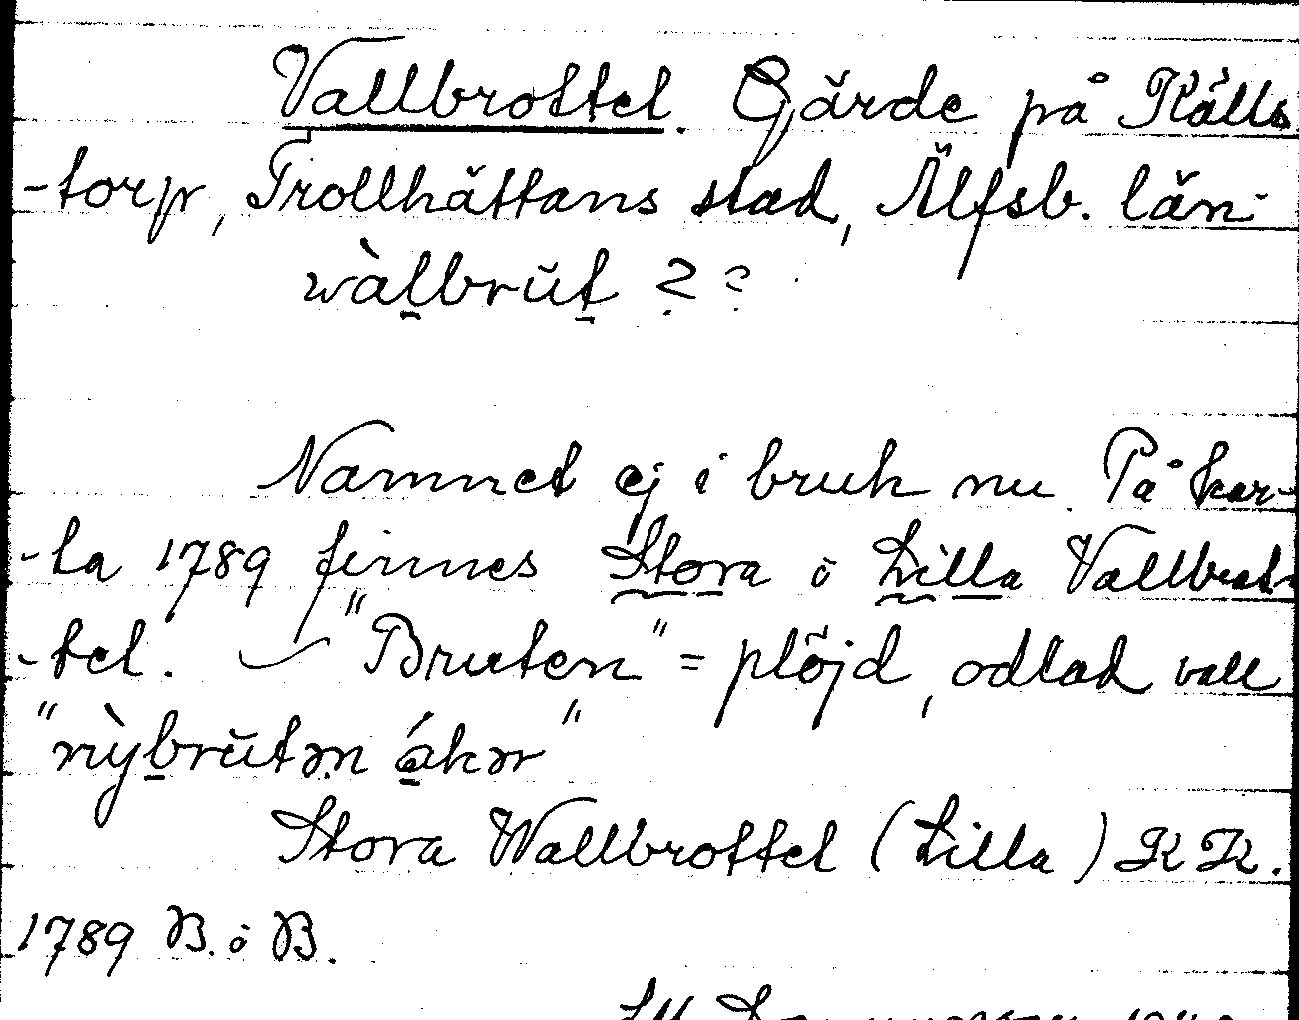 Vallbrottet. Gärde på Källs
-torp, Trollhättans stad, Älfsb. län
wàlbrŭt ? ?
Namnet ej i bruk nu. På kar-
-ta 1789 finnes Stora o Lilla Vallbrot-
-tet. — "Bruten" = plöjd, odlad vall
"nỳbrŭtən ákər"
Stora Wallbrottet (Lilla) KK.
1789 B. o B.